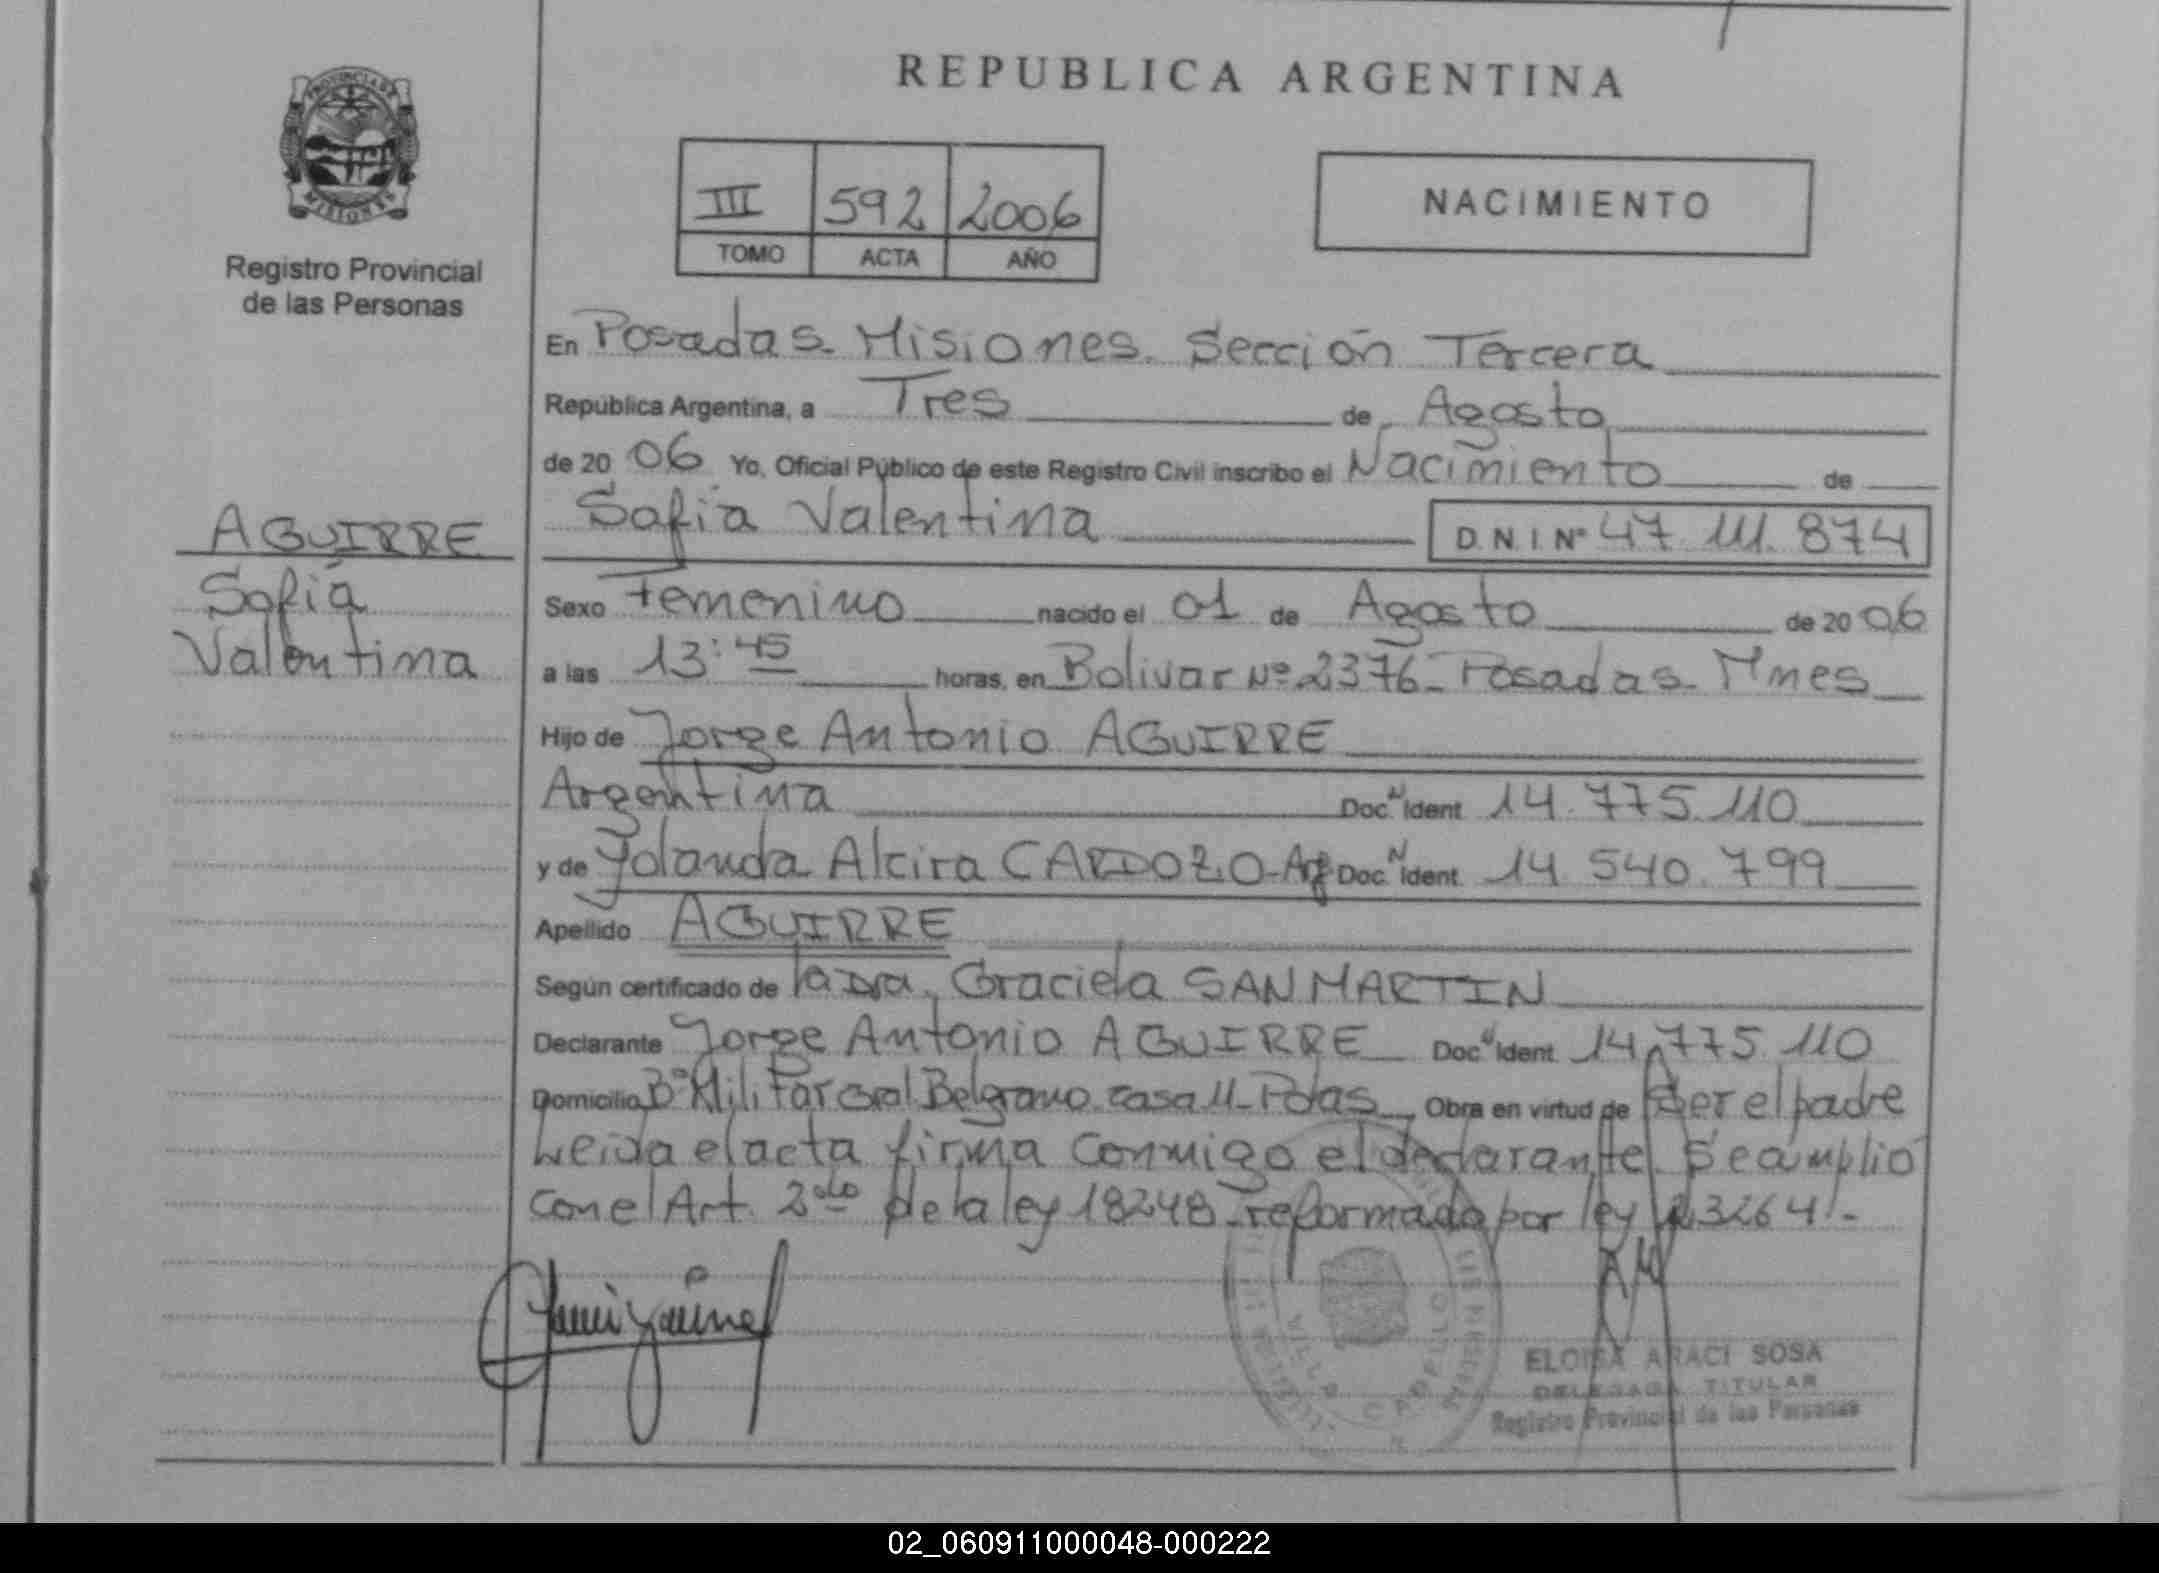 REPUBLICA ARGENTINA
PROVINCIA DE MISIONES
Registro Provincial
de las Personas
III 592 2006
TOMO ACTA AÑO
NACIMIENTO
En Posadas. Misiones. Sección Tercera
República Argentina, a Tres de Agosto
de 20 06 Yo, Oficial Público de este Registro Civil inscribo el Nacimiento de
Sofia Valentina D.N.I Nº 47.111.874
AGUIRRE
Sofía
Valentina
Sexo Femenino nacido el 01 de Agosto de 20 06
a las 13:45 horas, en Bolivar Nº 2376- Posadas- Mnes
Hijo de Jorge Antonio AGUIRRE
Argentina Doc. N Ident. 14.775.110
y de Yolanda Alcira CARDOZO-Arg Doc. N Ident. 14.540.799
Apellido AGUIRRE
Según certificado de la Dra. Graciela SAN MARTIN
Declarante Jorge Antonio AGUIRRE Doc. N Ident. 14.775.110
Domicilio Bº Militar Gral Belgrano casa 11- Pdas Obra en virtud de ser el padre
Leida el acta firma conmigo el declarante. Se amplió
con el Art. 2do de la ley 18248 reformado por ley 23264.-
VILLA CAPILLO
ELOISA ARACI SOSA
DELEGADA TITULAR
Registro Provincial de las Personas
02_060911000048-000222